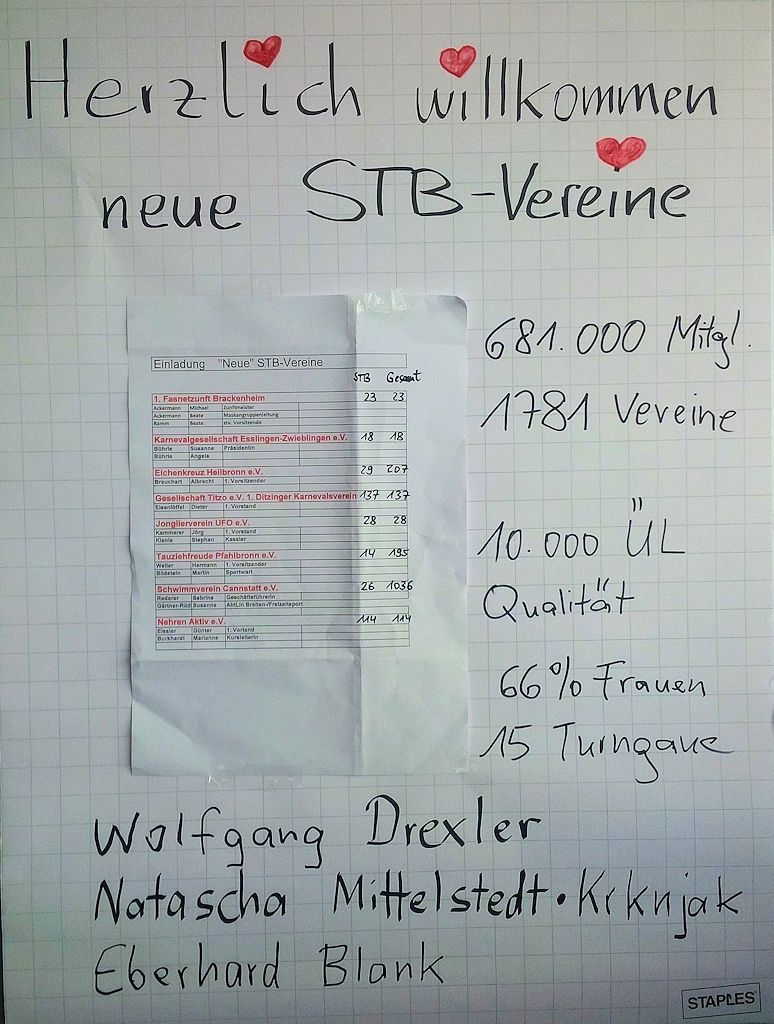 Herzlich willkommen
neue STB-Vereine
Einladung "Neue" STB-Vereine
STB Gesamt
1. Fasnetzunft Brackenheim 23 23
Ackermann Michael Zunftmeister
Ackermann Beate Maskengruppenleitung
Ramm Beate stv. Vorsitzende
Karnevalgesellschaft Esslingen-Zwieblingen e.V. 18 18
Bührle Susanne Präsidentin
Bührle Angela
Eichenkreuz Heilbronn e.V. 29 207
Brauchart Albrecht 1. Vorsitzender
Gesellschaft Titzo e.V. 1. Ditzinger Karnevalsverein 137 137
Eisenlöffel Dieter 1. Vorstand
Jonglierverein UFO e.V. 28 28
Kammerer Jörg 1. Vorstand
Kienle Stephan Kassier
Tauziehfreude Pfahlbronn e.V. 14 195
Weller Hermann 1. Vorsitzender
Bildstein Martin Sportwart
Schwimmverein Cannstatt e.V. 26 1036
Rederer Sabrina Geschäftsführerin
Gärtner-Rüd Susanne AbtLin Breiten-/Freizeitsport
Nehren Aktiv e.V. 114 114
Eissler Günter 1. Vortand
Burkhardt Marianne Kursleiterin
681.000 Mitgl.
1781 Vereine
10.000 ÜL
Qualität
66% Frauen
15 Turngaue
Wolfgang Drexler
Natascha Mittelstedt·Krknjak
Eberhard Blank
STAPLES